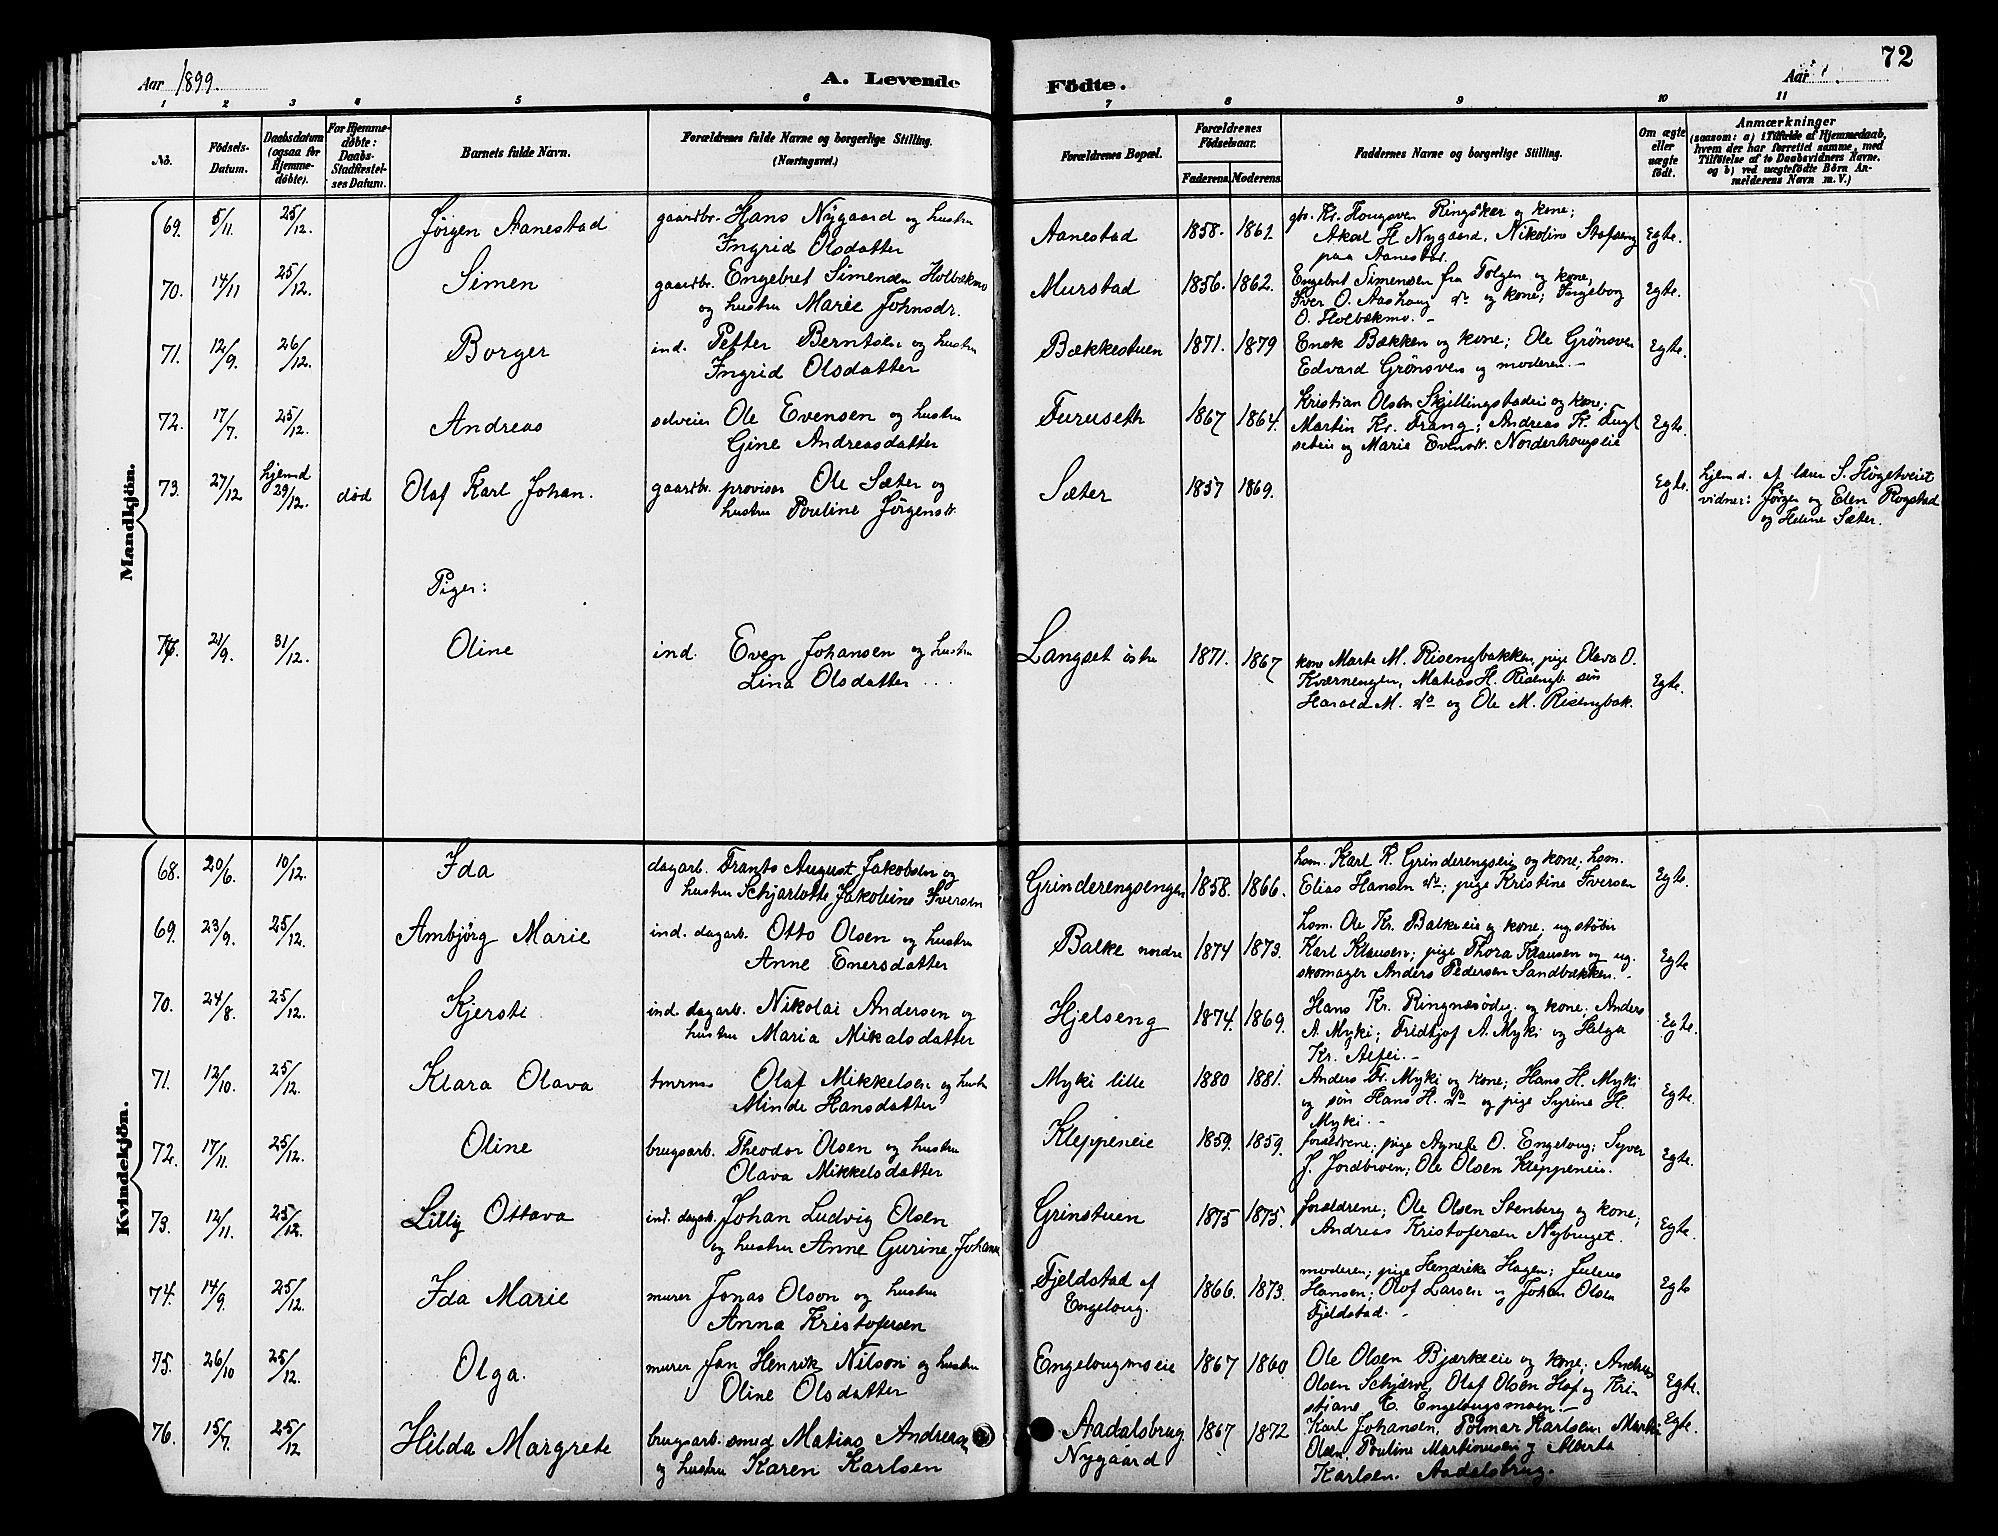 72
Aar 1899. A. Levende Födte. Aar
1 2 3 4 5 6 7 8 9 10 11
No. Födsels-Datum. Daabsdatum (ogsaa for Hjemme-døbte). For Hjemme-døbte: Daabs-Stadfæstelses Datum. Barnets fulde Navn. Forældrenes fulde Navne og borgerlige Stilling. (Næringsvei.) Forældrenes Bopæl. Forældrenes Födselsaar. Faderens. Moderens. Faddernes Navne og borgerlige Stilling. Om ægte eller uægte födt. Anmærkninger (saasom: a) i Tilfælde af Hjemmedaab, hvem der har forrettet samme, med Tilföielse af to Daabsvidners Navne. og b) ved uægtefödte Börn Anmelderens Navn m. V.)
Mandkjön.
69. 5/11 25/12. Jørgen Aanestad gaardbr. Hans Nygaard og hustru Aanestad 1858. 1861. gbr. Kr. Hougsven Ringsaker og kone;
Ingrid Olsdatter Aksel H. Nygaard, Nikoline Stafseng Egte.
paa Aanestad.
70. 14/11 25/12. Simen gaardbr. Engebret Simensen Holbækmo Murstad 1856. 1862. Engebret Simensen fra Tolgen og kone,
og hustru Marie Johnsdr. Iver O. Aashaug do og kone; Ingebog Egte.
O. Holbækmo. -
71. 12/9. 26/12. Borger ind. Petter Berntsen og hustru Bækkestuen 1871. 1879 Enok Bækken og kone; Ole Grönsven
Ingrid Olsdatter Edvard Grönsven og moderen. - Egte.
72. 17/7. 25/12. Andreas selveier Ole Evensen og hustru Furuseth 1867 1864. Kristian Olsen Skjellingstadeie og kone;
Gine Andreasdatter Martin Kr. Frang; Andreas K. Fugl
seteie og Marie Evensdt. Norderhougseie Egte.
73. 27/12 hjemd 29/12. død Olaf Karl Johan. gaardbr. provisor Ole Sæter og Sæter 1857 1869. Egte. hjemd. af lærer S. Høgetveit
hustru Pouline Jørgensdt. vidner: Jørgen og Elen Rogstad
og Helene Sæter.
Piger:
77. 21/9. 31/12. Oline ind. Even Johansen og hustru Langset østre 1871. 1867 kone Marte M. Risengbakken, pige Olava O.
Lina Olsdatter ... Kværnengen, Matias H. Risengb. søn
Harald M. do og Ole M. Risengbak. Egte.
Kvindekjön.
68. 20/6. 10/12. Ida dagarb. Frants August Jakobsen og Grinderengsengen 1858. 1866. hsm. Karl K. Grinderengseie og kone; hsm.
hustru Schjarlotte Jakobine Iversen Elias Hansen do; pige Kristine Iversen Egte.
69. 23/9. 25/12. Ambjørg Marie ind. dagarb. Otto Olsen og hustru Balke nordre 1874 1873. hsm. Ole Kr. Balkeeie og kone. ug. støber
Anne Enersdatter Karl Klausen; pige Thora Klausen og ug.
skomager Anders Pedersen Sandbækken. - Egte
70. 24/8. 25/12. Kjersti ind. dagarb. Nikolai Andersen og Hjelseng 1874. 1869. Hans Kr. Ringnæsødeg. og kone. Anders
hustru Maria Mikalsdatter A. Myki; Fridtjof A. Myki og Helga Egte.
Kr. Alfei. -
71. 12/10. 25/12. Klara Olava tmrms Olaf Mikkelsen og hustr Myki lille 1880 1881. Anders Fr. Myki og kone; Hans H. Myki
Minde Hansdatter og søn Hans H. do og pige Syrine H. Egte.
Myki. -
72. 17/11. 25/12. Oline brugsarb. Theodor Olsen og hustru Kleppeneie 1859. 1859. forældrene; pige Agnete O. Engeloug; Syver
Olava Mikkelsdatter J. Jordbroen; Ole Olsen Kleppeneie. Egte.
73. 12/11. 25/12. Lilly Ottava ind. dagarb. Johan Ludvig Olsen Grinstuen 1875 1875. forældrene; Ole Olsen Stenberg og kone;
og hustru Anne Gurine Johans Andreas Kristofersen Nybruget. Egte.
74. 14/9. 25/12. Ida Marie murer Jonas Olson og hustru Fjeldstad af 1866. 1873. moderen; pige Hendrike Hagen; Julius
Anna Kristofersen Engeloug. Hansen; Olof Larsen og Johan Olsen Egte
Fjeldstad. -
75. 26/10 25/12. Olga. murer Jan Henrik Nilson og hustru Engelougmseie 1867 1860 Ole Olsen Bjærkeeie og kone; Andreas
Oline Olsdatter Olsen Schjærve, Olaf Olsen Hof og Kri-
stiane E. Engelougsmoen. - Egte.
76. 15/7. 25/12 Hilda Margrete brugsarb. smed Matias Andreas Aadalsbrug 1867 1872 Karl Johansen, Polmar Karlsen, Martin Egte.
og hustru Karen Karlsen Nygaard Olsen, Pouline Martinusen og Alberta
Karlsen. Aadalsbrug.